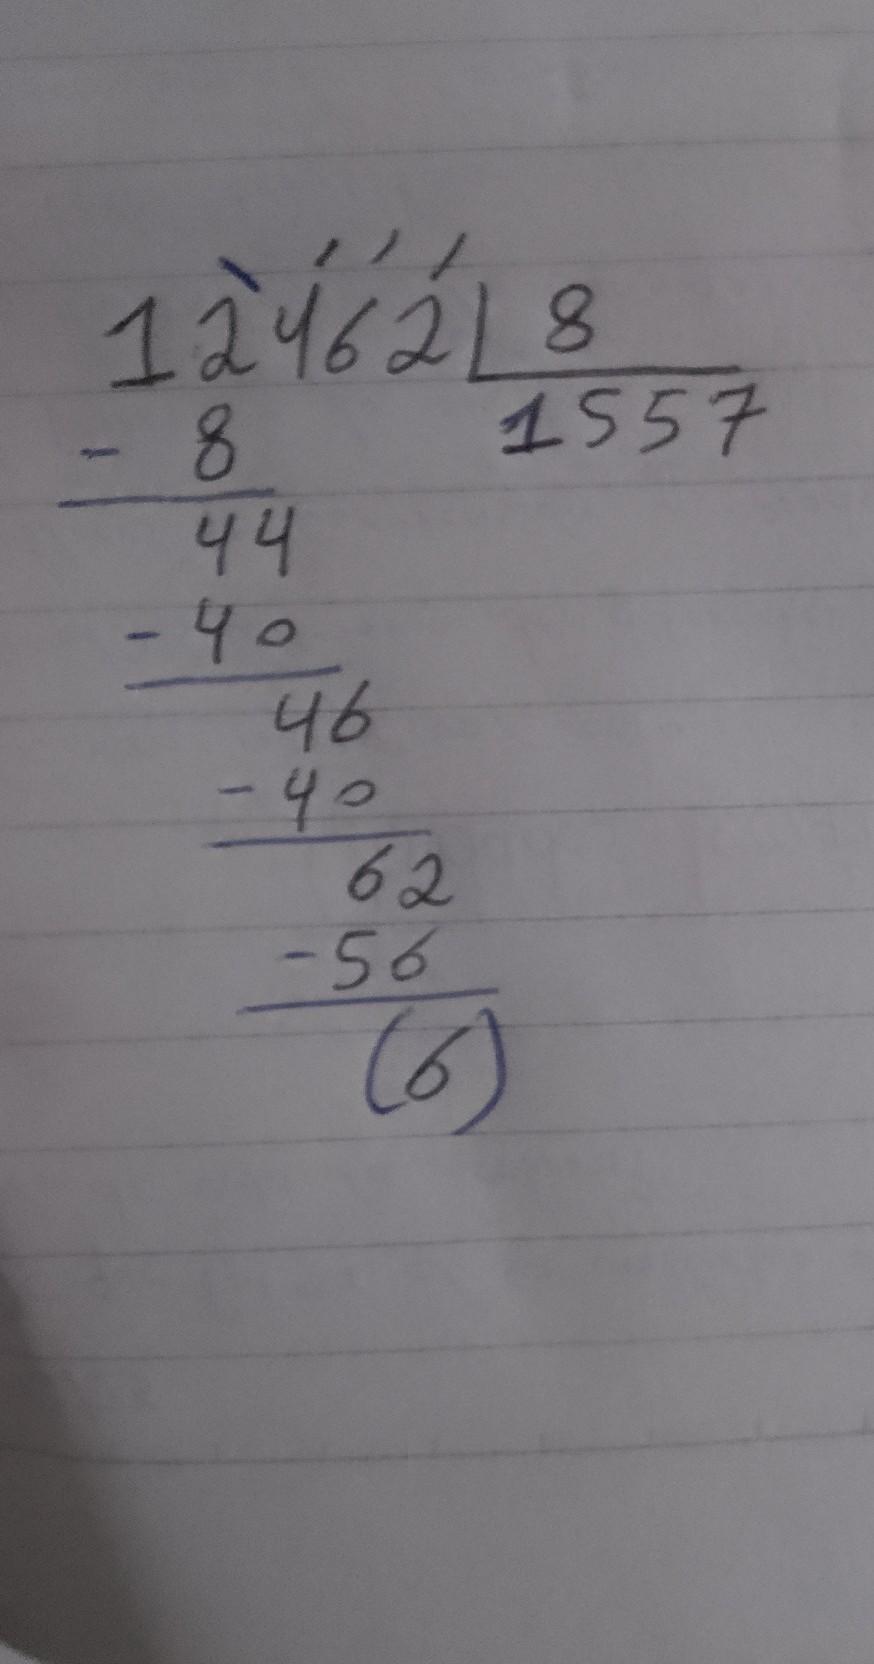 12462 8
- 8 1557
44
- 40
46
- 40
62
- 56
(6)